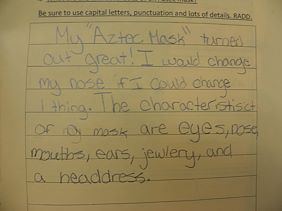 Be sure to use capital letters, punctuation and lots of details. RADD.
My "Aztec Mask" turned
out great! I would change
my nose if I could change
1 thing. The characteristisct
of my mask are eyes, nose,
mouths, ears, jewlery, and
a headdress.